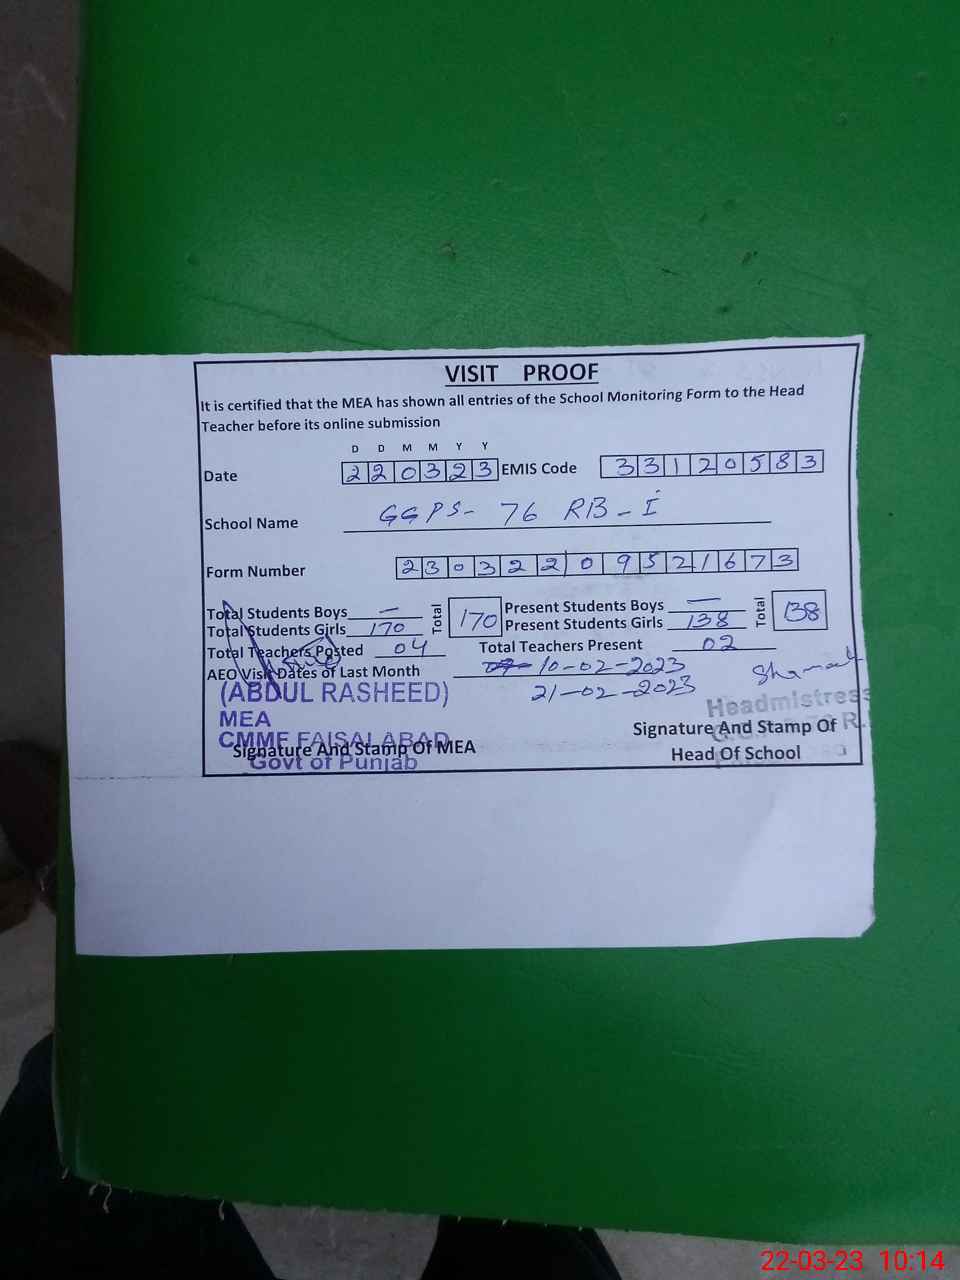 VISIT PROOF
It is certified that the MEA has shown all entries of the School Monitoring Form to the Head
Teacher before its online submission
D D M M Y Y
Date 220323 EMIS Code 33120583
School Name GGPS- 76 RB-I
Form Number 23032209521673
Total Students Boys — Total 170 Present Students Boys — Total 138
Total Students Girls 170 Present Students Girls 138
Total Teachers Posted 04 Total Teachers Present 02
AEO Visit Dates of Last Month 10-02-2023
21-02-2023
(ABDUL RASHEED)
MEA
CMMF FAISALABAD
Govt of Punjab
Signature And Stamp Of MEA
Headmistress
Signature And Stamp Of
Head Of School
22-03-23 10:14